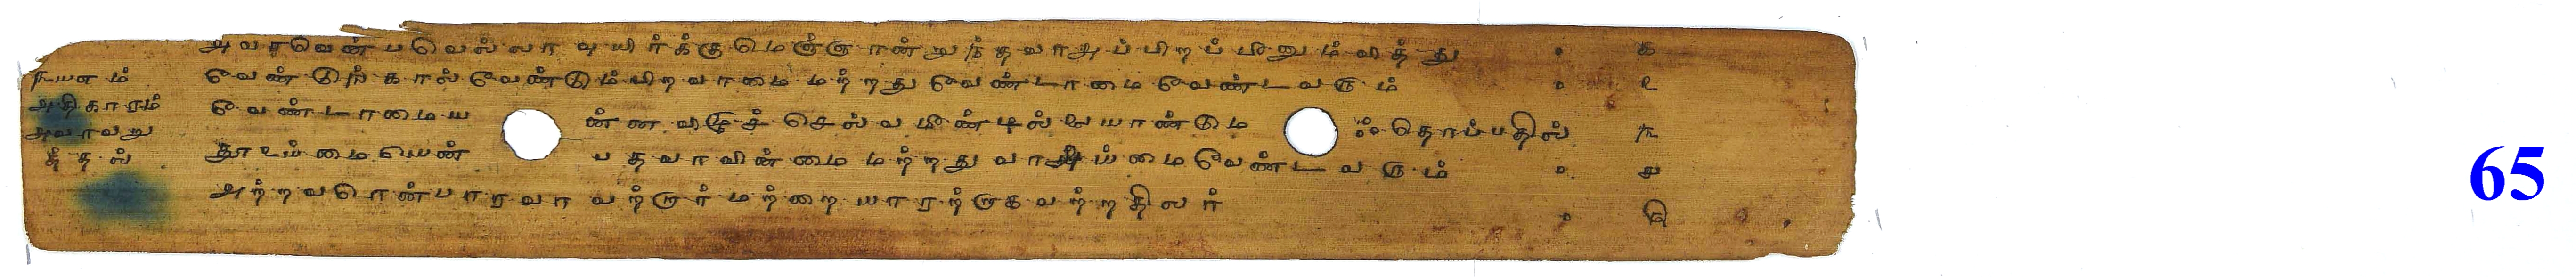 ௩௰௭ம்
அதிகாரம்
அவாவறு
த்தல்
அவாவென்பவெல்லா வுயிர்க்குமெஞ்ஞான்றுந்தவாஅப்பிறப்பீனும்வித்து ௧
வேண்டுங்கால்வேண்டும்பிறவாமைமற்றதுவேண்டாமைவேண்டவரும் ௨
வேண்டாமைய ன்னவிழுச்செல்வமீண்டில்லையாண்டும ஃதொப்பதில் ௩
தூஉய்மையென் பதவாவின்மைமற்றதுவாஅய்மைவேண்டவரும் ௪
அற்றவரென்பாரவா வற்றார்மற்றையாரற்றாகவற்றதிலர் ௫
65